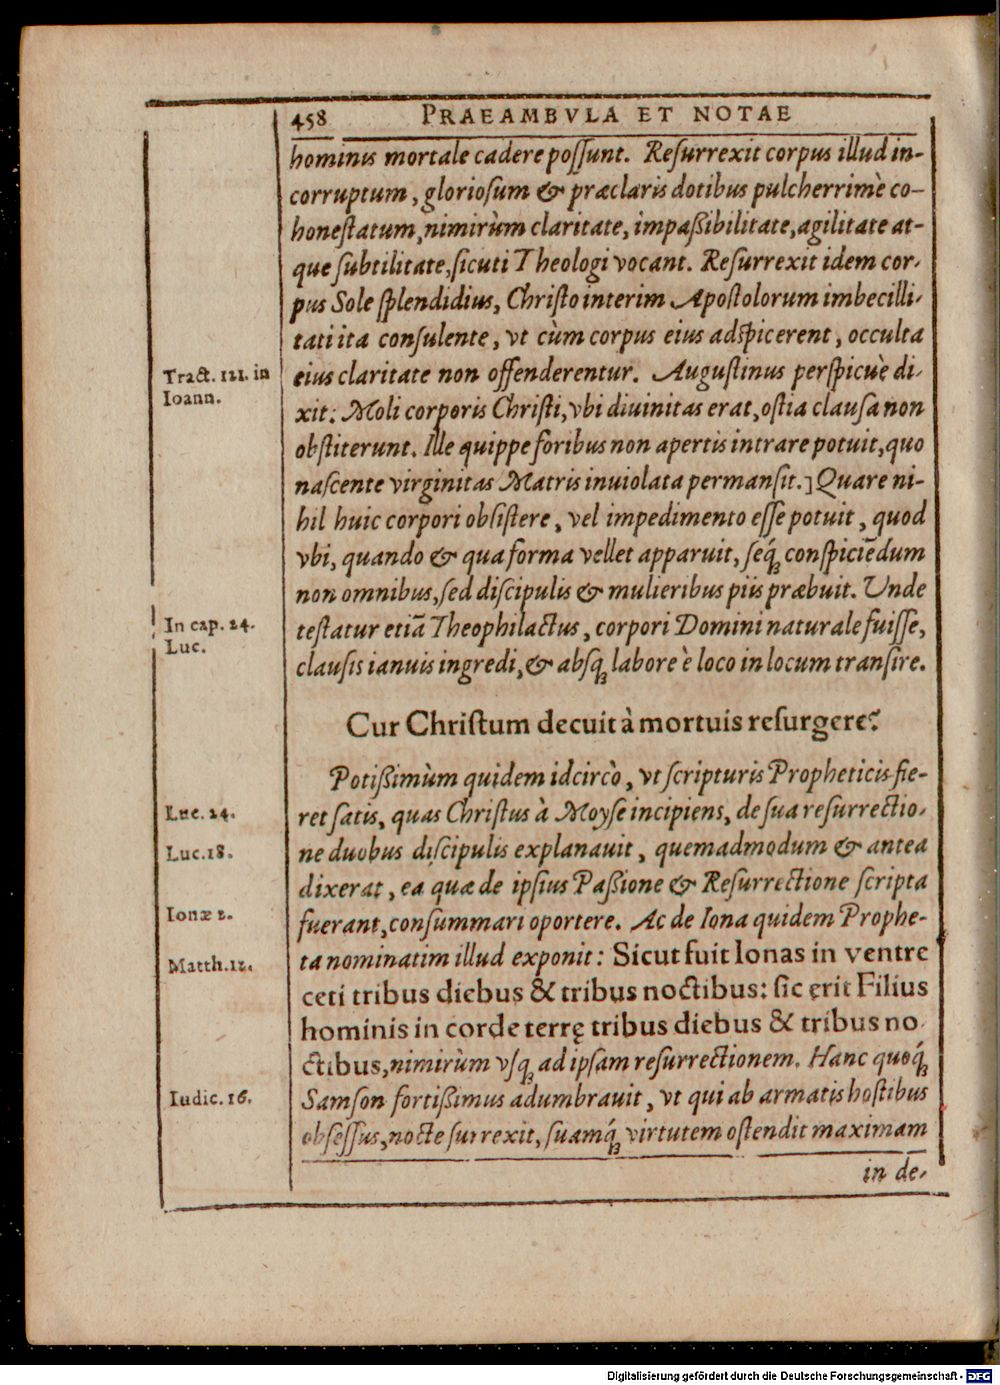 458 PRAEAMBVLA ET NOTAE
hominis mortale cadere possunt. Resurrexit corpus illud in-
corruptum, gloriosum & præclaris dotibus pulcherrimè co-
honestatum, nimirùm claritate, impaßibilitate, agilitate at-
que subtilitate, sicuti Theologi vocant. Resurrexit idem cor-
pus Sole splendidius, Christo interim Apostolorum imbecilli-
tati ita consulente, vt cùm corpus eius adspicerent, occulta
Tract. 121. in
Ioann.
eius claritate non offenderentur. Augustinus perspicuè di-
xit: Moli corporis Christi, vbi diuinitas erat, ostia clausa non
obstiterunt. Ille quippe foribus non apertis intrare potuit, quo
nascente virginitas Matris inuiolata permansit.] Quare ni-
hil huic corpori obsistere, vel impedimento esse potuit, quod
vbi, quando & qua forma vellet apparuit, seq́ꝫ conspiciẽdum
non omnibus, sed discipulis & mulieribus piis præbuit. Unde
In cap. 24.
Luc.
testatur etiã Theophilactus, corpori Domini naturale fuisse,
clausis ianuis ingredi, & absqꝫ labore è loco in locum transire.
Cur Christum decuit à mortuis resurgere?
Potißimùm quidem idcircò, vt scripturis Propheticis fie-
Luc. 24.
ret satis, quas Christus à Moyse incipiens, de sua resurrectio-
Luc. 18.
ne duobus discipulis explanauit, quemadmodum & antea
dixerat, ea quæ de ipsius Paßione & Resurrectione scripta
Ionæ 2.
fuerant, consummari oportere. Ac de Iona quidem Prophe-
Matth. 12.
ta nominatim illud exponit: Sicut fuit Ionas in ventre
ceti tribus diebus & tribus noctibus: sic erit Filius
hominis in corde terrę tribus diebus & tribus no-
ctibus, nimirùm vsqꝫ ad ipsam resurrectionem. Hanc quoq́ꝫ
Iudic. 16.
Samson fortißimus adumbrauit, vt qui ab armatis hostibus
obsessus, nocte surrexit, suamq́ꝫ virtutem ostendit maximam
in de-
Digitalisierung gefördert durch die Deutsche Forschungsgemeinschaft - DFG